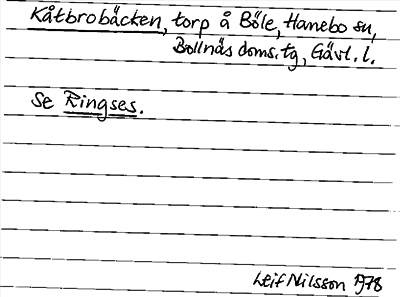 Kåtbrobäcken, torp å Böle, Hanebo sn,
Bollnäs doms.tg, Gävl. l.
Se Ringses.
Leif Nilsson 1978